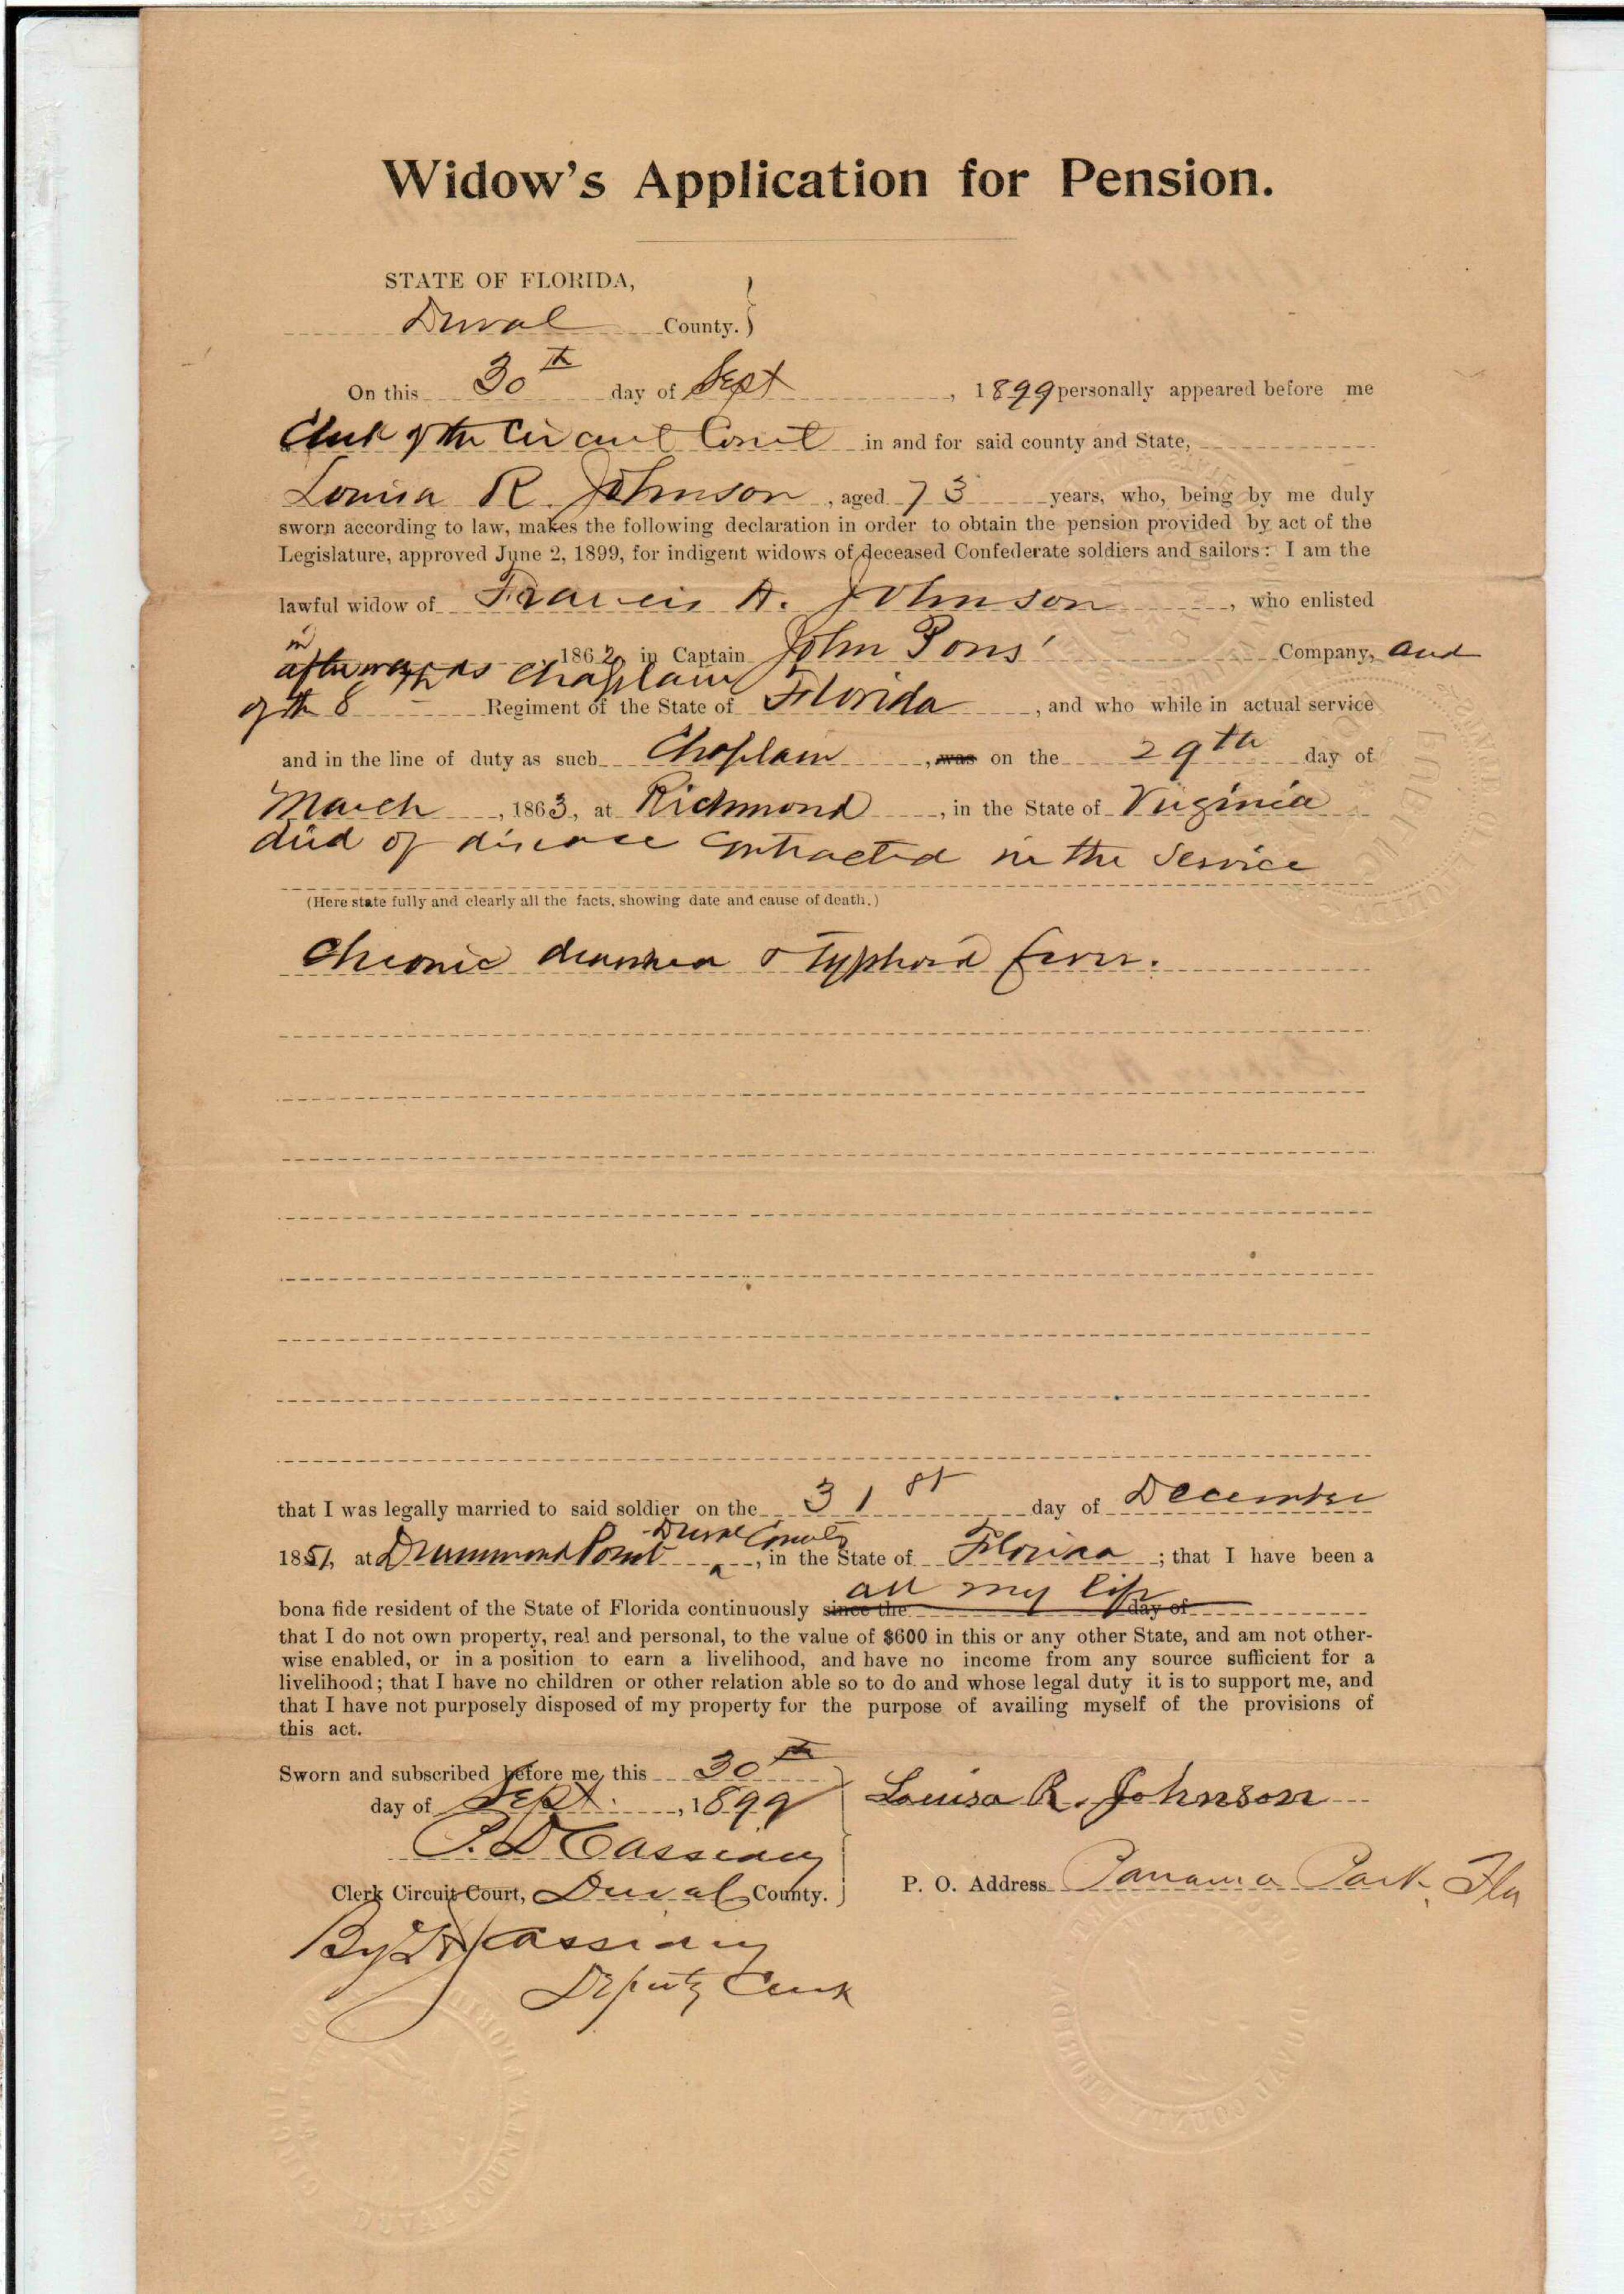 Widow's Application for Pension.
STATE OF FLORIDA,
Duval County.
On this 30th day of Sept, 1899 personally appeared before me
Clerk of the Circuit Court in and for said county and State,
Louisa R. Johnson, aged 73 years, who, being by me duly
sworn according to law, makes the following declaration in order to obtain the pension provided by act of the
Legislature, approved June 2, 1899, for indigent widows of deceased Confederate soldiers and sailors: I am the
lawful widow of Francis A. Johnson, who enlisted
in 1862 in Captain John Pons' Company, and
afterwards Chaplain
of the 8th Regiment of the State of Florida, and who while in actual service
and in the line of duty as such Chaplain, was on the 29th day of
March, 1863, at Richmond, in the State of Virginia
died of disease contracted in the service
(Here state fully and clearly all the facts, showing date and cause of death.)
Chronic diarrhea & Typhoid fever.
that I was legally married to said soldier on the 31st day of December
Duval County
1851, at Drummond Point, in the State of Florida; that I have been a
all my life
bona fide resident of the State of Florida continuously since the day of
that I do not own property, real and personal, to the value of $600 in this or any other State, and am not other-
wise enabled, or in a position to earn a livelihood, and have no income from any source sufficient for a
livelihood; that I have no children or other relation able so to do and whose legal duty it is to support me, and
that I have not purposely disposed of my property for the purpose of availing myself of the provisions of
this act.
Sworn and subscribed before me, this 30th
day of Sept., 1899
Louisa R. Johnson
P. D. Cassidey
Clerk Circuit Court, Duval County.
P. O. Address Panama Park, Fla
By Cassidey
Deputy Clerk
DUVAL COUNTY